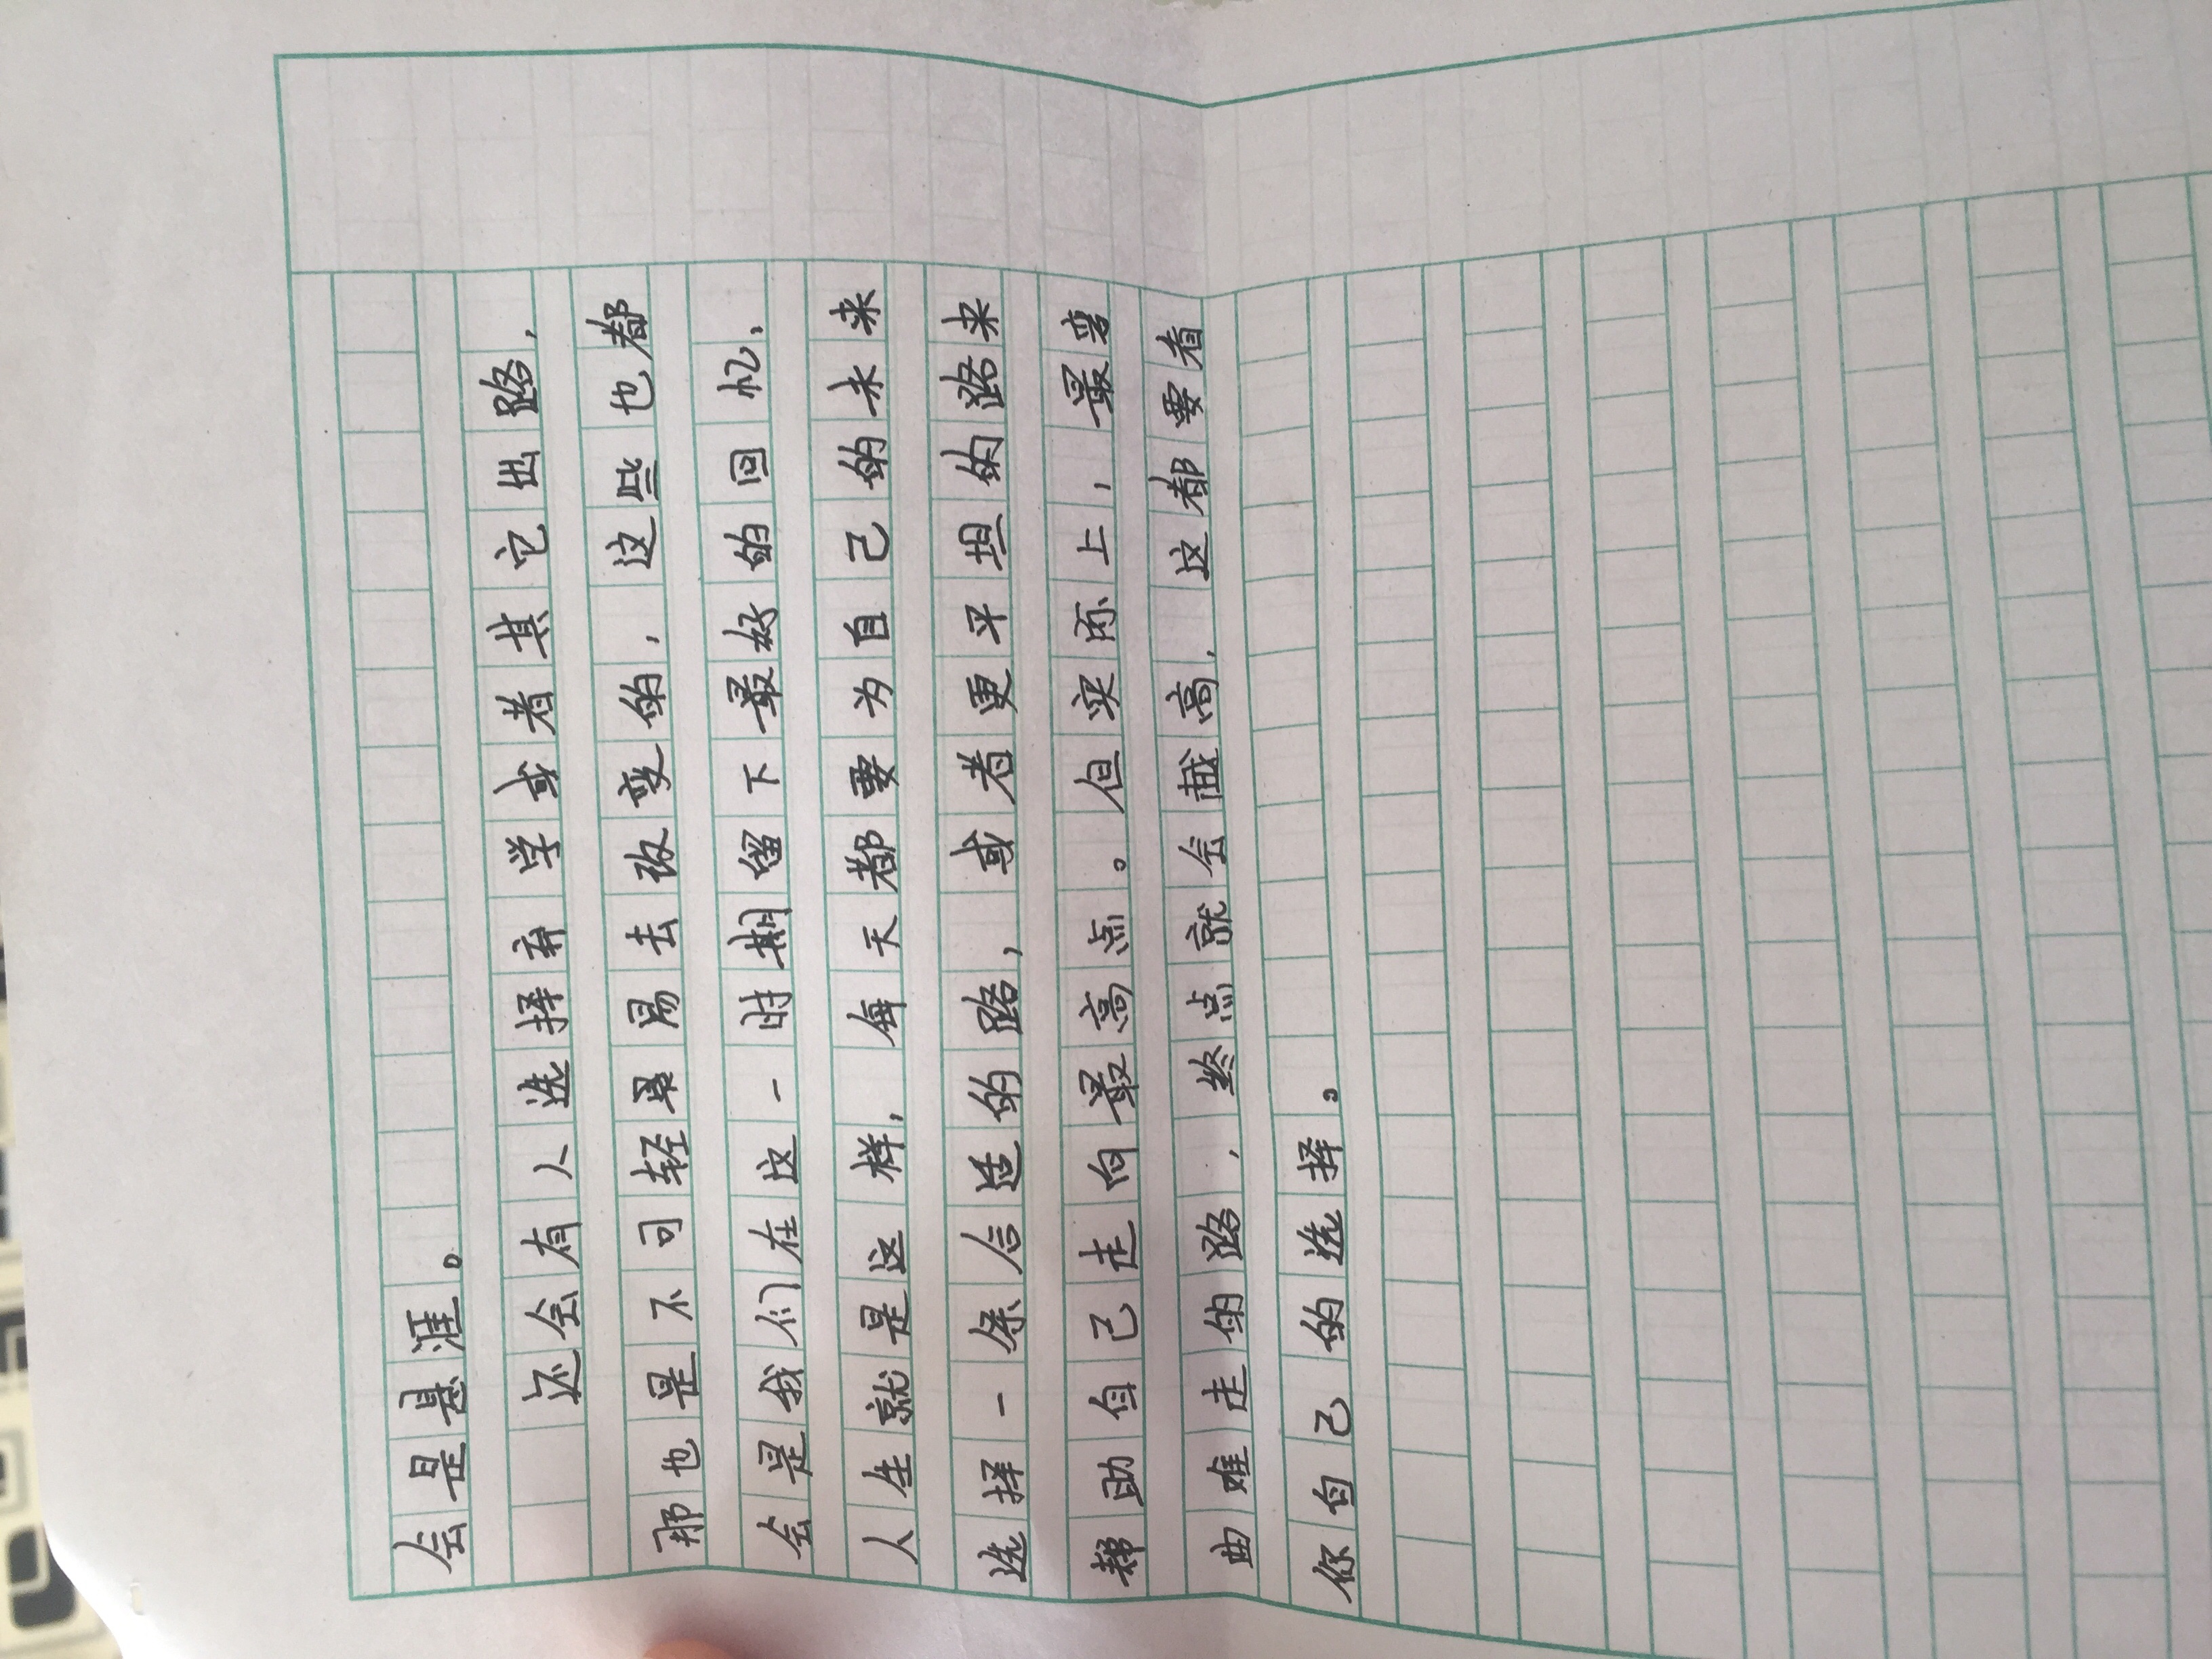 会是悬涯。
还会有人选择弃学或者其它出路，
那也是不可轻易去改变的，这些也都
会是我们在这一时期留下最好的回忆，
人生就是这样，每天都要为自己的未来
选择一条合适的路，或者更平坦的路来
帮助自己走向最高点。但实际上，最弯
曲难走的路，终点就会越高，这都要看
你自己的选择。